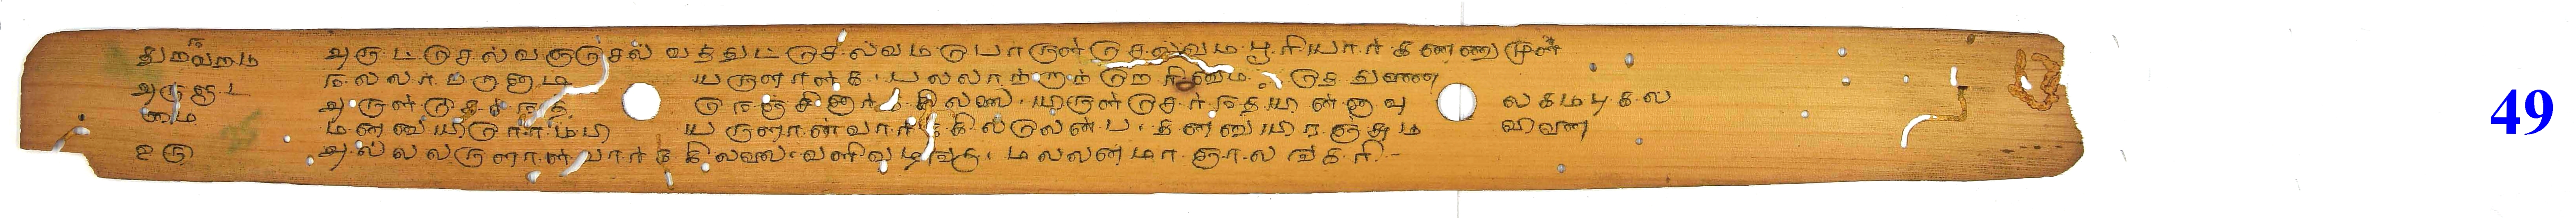 துறவறம அருட்செல்வஞ்செல் வத்துட்செல்வம பொருள்செல்வம பூரியார் கண்ணுமுள
யருளாள்க
அருளுடை அருள்சேர்ந்த நெஞ்சினார்க்கில்லை யிருள்சேர்ந்தயின்னாவு லகம புகல
மை மன்னுயிரோம்பி யருளாள்வார்க்கில்லென்ப தன்னுயிரஞ்சும வினை
௨௫ அல்லலருளாள்வார்க்கில்லை வளிவழங்கு மல்லன்மா ஞாலங்கரி
49